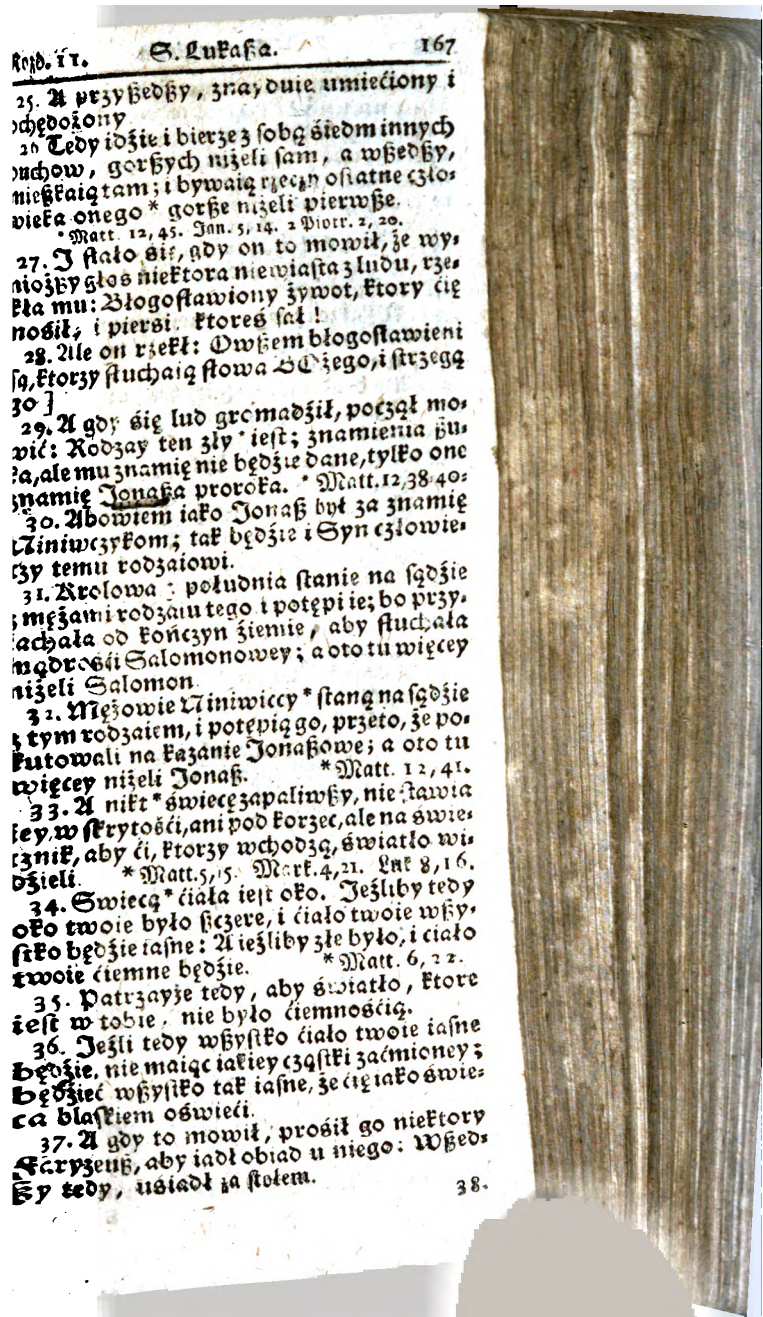 Rozd. 11. S. Lukaßa. 167
25. A przyßedßy, znayduie umiećiony i
ochędożony
26 Tedy idźie i bierze z sobą śiedm innych
duchow, gorßych niżeli sam, a wßedßy,
mießkaią tam; i bywaią rzeczy ostatne czło-
wieka onego * gorße niżeli pierwße.
* Matt. 12, 45. Jan. 5, 14. 2 Piotr. 2, 20.
27. I stało śię, gdy on to mowił, że wy-
niożßy głos niektora niewiasta z ludu, rze-
kła mu: Błogosławiony żywot, ktory ćię
nośił, i piersi. ktoreś sał!
28. Ale on rzekł: Owßem błogosławieni
są, ktorzy słuchaią słowa BOżego, i strzegą
go]
29. A gdy śię lud gromadźił, począł mo-
wić: Rodzay ten zły * iest; znamienia ßu-
ka, ale mu znamię nie będźie dane, tylko ono
znamię Jonaßa proroka. * Matt. 12, 38 40:
30. Abowiem iako Jonaß był za znamię
Niniwczykom; tak będźie i Syn człowie-
czy temu rodzaiowi.
31. Krolowa z południa stanie na sądźie
z mężami rodzaiu tego i potępi ie; bo przy-
iachała od kończyn źiemie, aby słuchała
mądrośći Salomonowey; a oto tu więcey
niżeli Salomon
32. Mężowie Niniwiccy * staną na sądźie
z tym rodzaiem, i potępią go, przeto, że po-
kutowali na kazanie Jonaßowe; a oto tu
więcey niżeli Jonaß. * Matt. 12, 41.
33. A nikt * świecę zapaliwßy, nie stawia
iey, w skrytośći, ani pod korzec, ale na świe-
cznik, aby ći, ktorzy wchodzą, światło wi-
dźieli. * Matt. 5, 15. Mark. 4, 21. Luk 8, 16.
34. Swiecą * ćiała iest oko. Jeźliby tedy
oko twoie było ßczere, i ćiało twoie wßy-
stko będźie iasne: A ieźliby złe było, i ćiało
twoie ćiemne będźie. * Matt. 6, 22.
35. Patrzayże tedy, aby światło, ktore
iest w tobie, nie było ćiemnośćią.
36. Jeźli tedy wßystko ćiało twoie iasne
będźie, nie maiąc iakiey cząstki zaćmioney;
będźieć wßystko tak iasne, że ćię iako świe-
ca blaskiem oświeći.
37. A gdy to mowił, prośił go niektory
Faryzeuß, aby iadł obiad u niego: Wßed-
ßy tedy, uśiadł za stołem.
38.